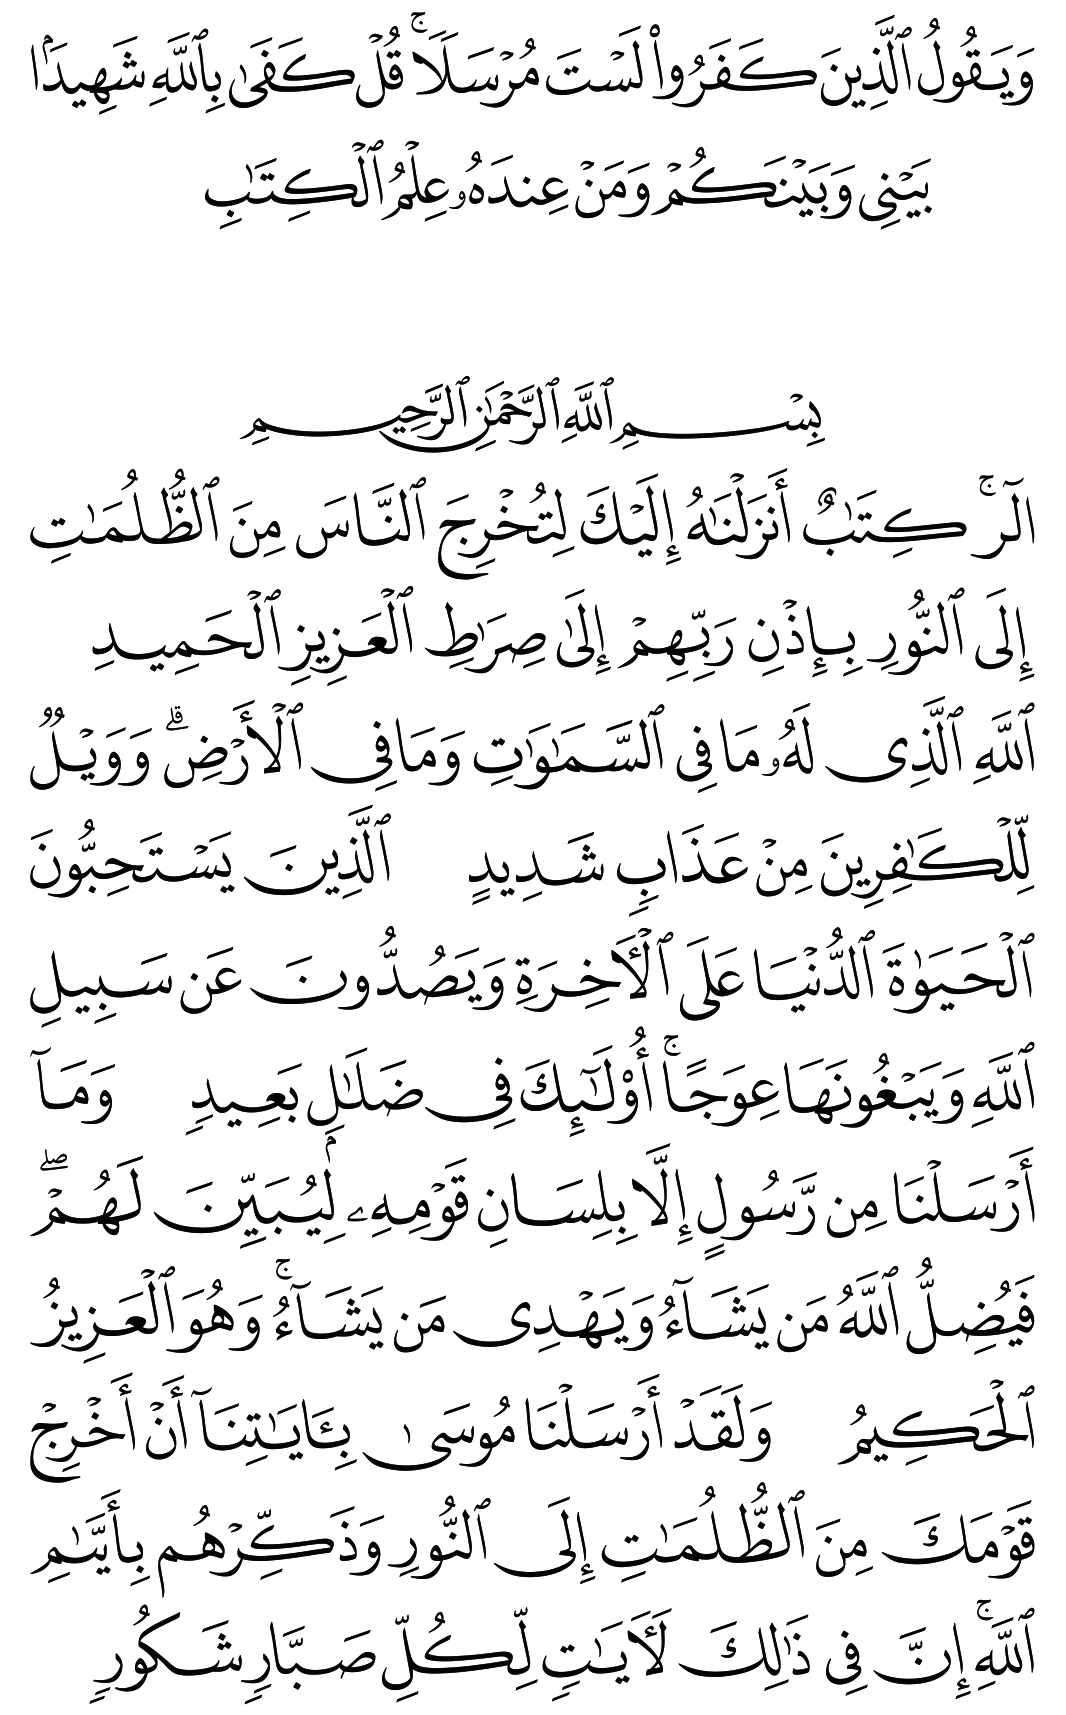 وَيَقُولُ ٱلَّذِينَ كَفَرُوا۟ لَسْتَ مُرْسَلًا ۚ قُلْ كَفَىٰ بِٱللَّهِ شَهِيدًۢا
بَيْنِى وَبَيْنَكُمْ وَمَنْ عِندَهُۥ عِلْمُ ٱلْكِتَـٰبِ
بِسْمِ ٱللَّهِ ٱلرَّحْمَـٰنِ ٱلرَّحِيمِ
الٓر ۚ كِتَـٰبٌ أَنزَلْنَـٰهُ إِلَيْكَ لِتُخْرِجَ ٱلنَّاسَ مِنَ ٱلظُّلُمَـٰتِ
إِلَى ٱلنُّورِ بِإِذْنِ رَبِّهِمْ إِلَىٰ صِرَٰطِ ٱلْعَزِيزِ ٱلْحَمِيدِ
ٱللَّهِ ٱلَّذِى لَهُۥ مَا فِى ٱلسَّمَـٰوَٰتِ وَمَا فِى ٱلْأَرْضِ ۗ وَوَيْلٌ
لِّلْكَـٰفِرِينَ مِنْ عَذَابٍ شَدِيدٍ ٱلَّذِينَ يَسْتَحِبُّونَ
ٱلْحَيَوٰةَ ٱلدُّنْيَا عَلَى ٱلْـَٔاخِرَةِ وَيَصُدُّونَ عَن سَبِيلِ
ٱللَّهِ وَيَبْغُونَهَا عِوَجًا ۚ أُو۟لَـٰٓئِكَ فِى ضَلَـٰلٍۭ بَعِيدٍ وَمَآ
أَرْسَلْنَا مِن رَّسُولٍ إِلَّا بِلِسَانِ قَوْمِهِۦ لِيُبَيِّنَ لَهُمْ ۖ
فَيُضِلُّ ٱللَّهُ مَن يَشَآءُ وَيَهْدِى مَن يَشَآءُ ۚ وَهُوَ ٱلْعَزِيزُ
ٱلْحَكِيمُ وَلَقَدْ أَرْسَلْنَا مُوسَىٰ بِـَٔايَـٰتِنَآ أَنْ أَخْرِجْ
قَوْمَكَ مِنَ ٱلظُّلُمَـٰتِ إِلَى ٱلنُّورِ وَذَكِّرْهُم بِأَيَّىٰمِ
ٱللَّهِ ۚ إِنَّ فِى ذَٰلِكَ لَـَٔايَـٰتٍ لِّكُلِّ صَبَّارٍ شَكُورٍ